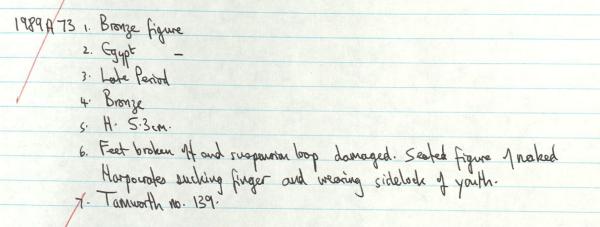 1989A73 1. Bronze figure
2. Egypt –
3. Late Period
4. Bronze
5. H. 5.3cm.
6. Feet broken off and suspension loop damaged. Seated figure of naked
Harpocrates sucking finger and wearing sidelock of youth.
7. Tamworth no. 139.